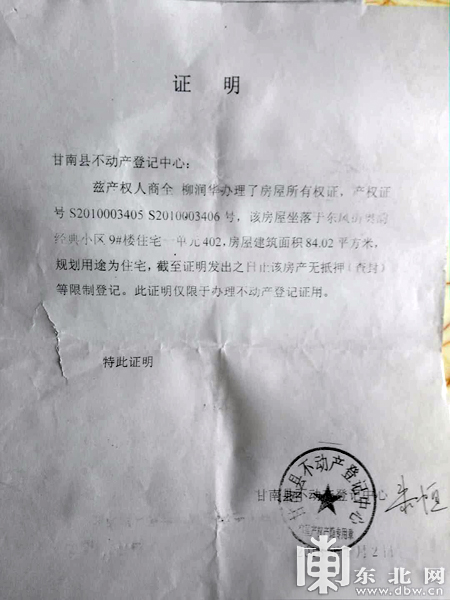 证 明
甘南县不动产登记中心:
兹产权人商全 柳润华办理了房屋所有权证，产权证
号 S2010003405 S2010003406 号，该房屋坐落于东风街
经典小区 9#楼住宅一单元 402，房屋建筑面积 84.02 平方米，
规划用途为住宅，截至证明发出之日止该房产无抵押（查封）
等限制登记。此证明仅限于办理不动产登记证用。
特此证明
甘南县不动产登记中心
甘南县不动产登记中心
东北网
www.dbw.cn